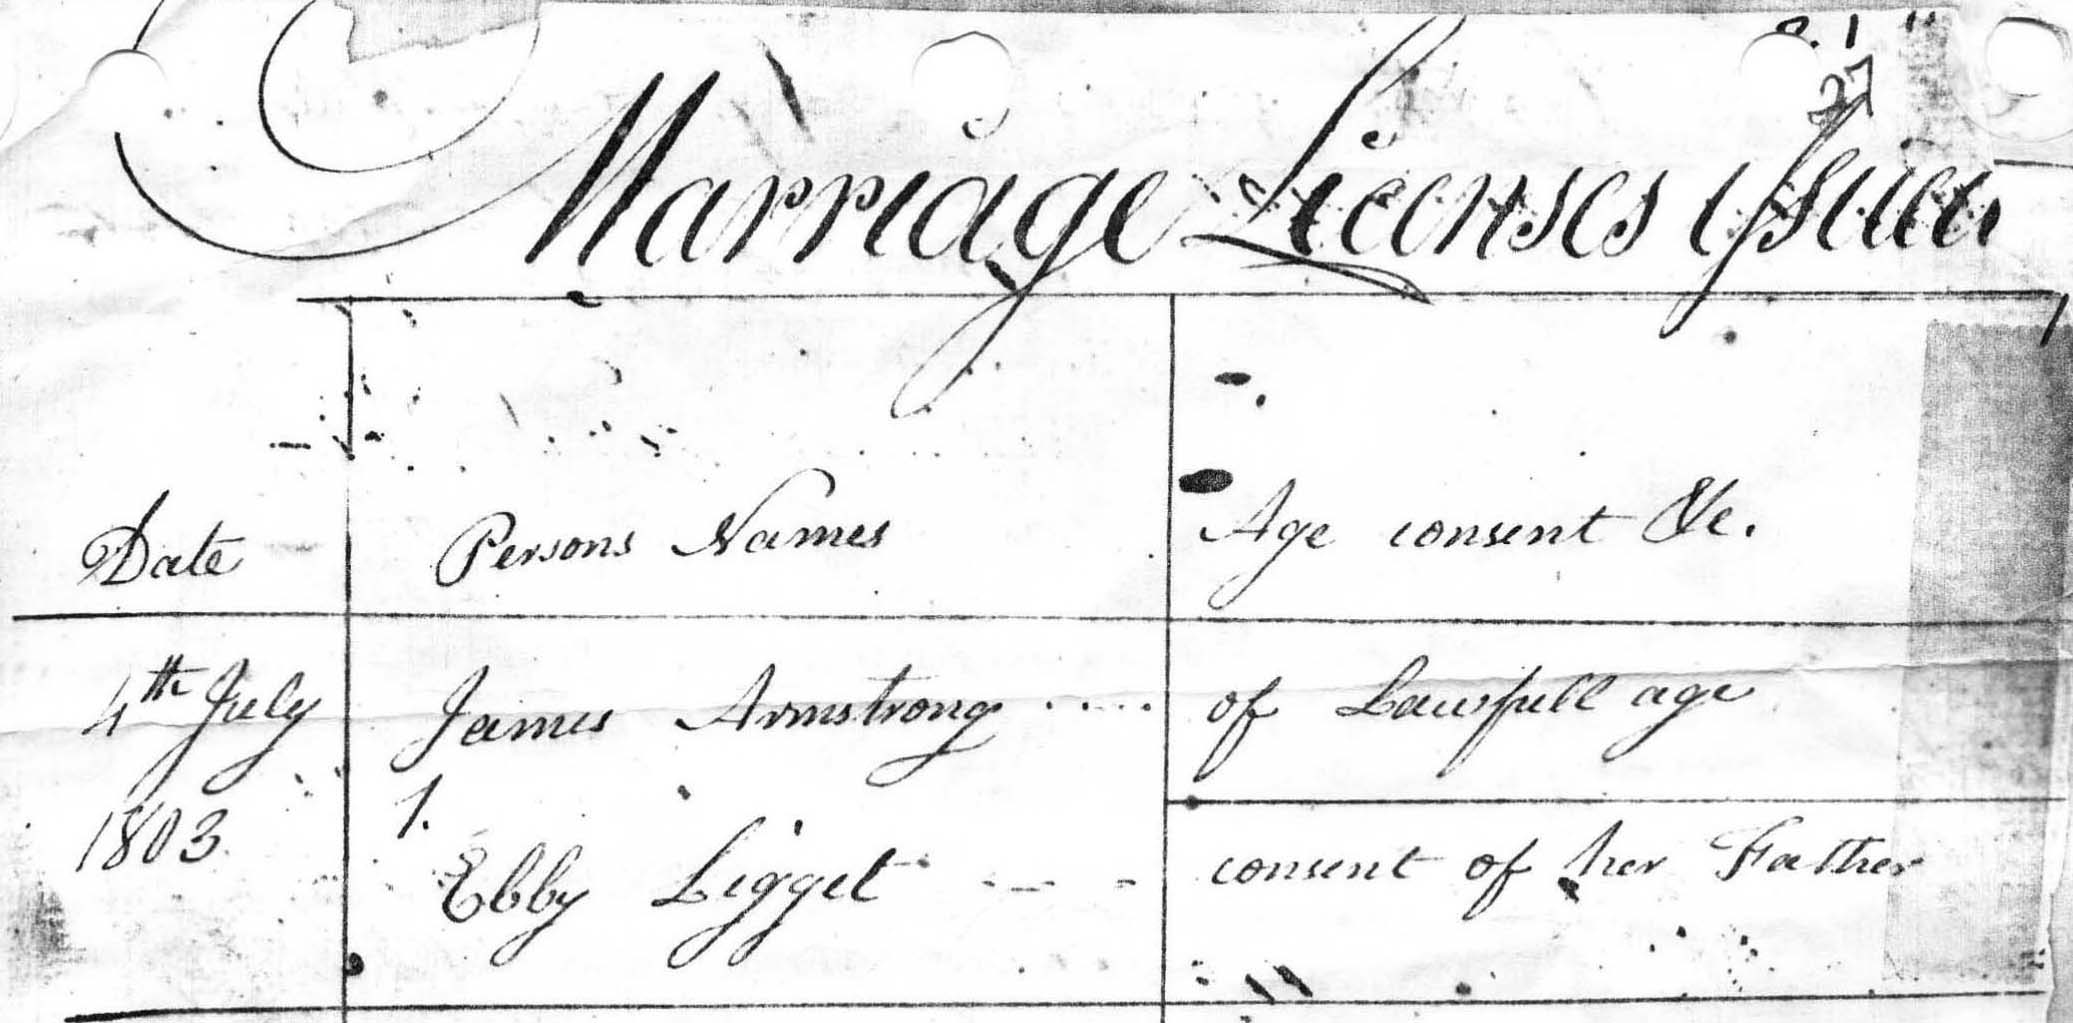 27
Marriage Licenses issued
Date Persons Names Age consent &c.
4th July James Armstrong of Lawfull age
1803 1.
Ebby Ligget consent of her Father